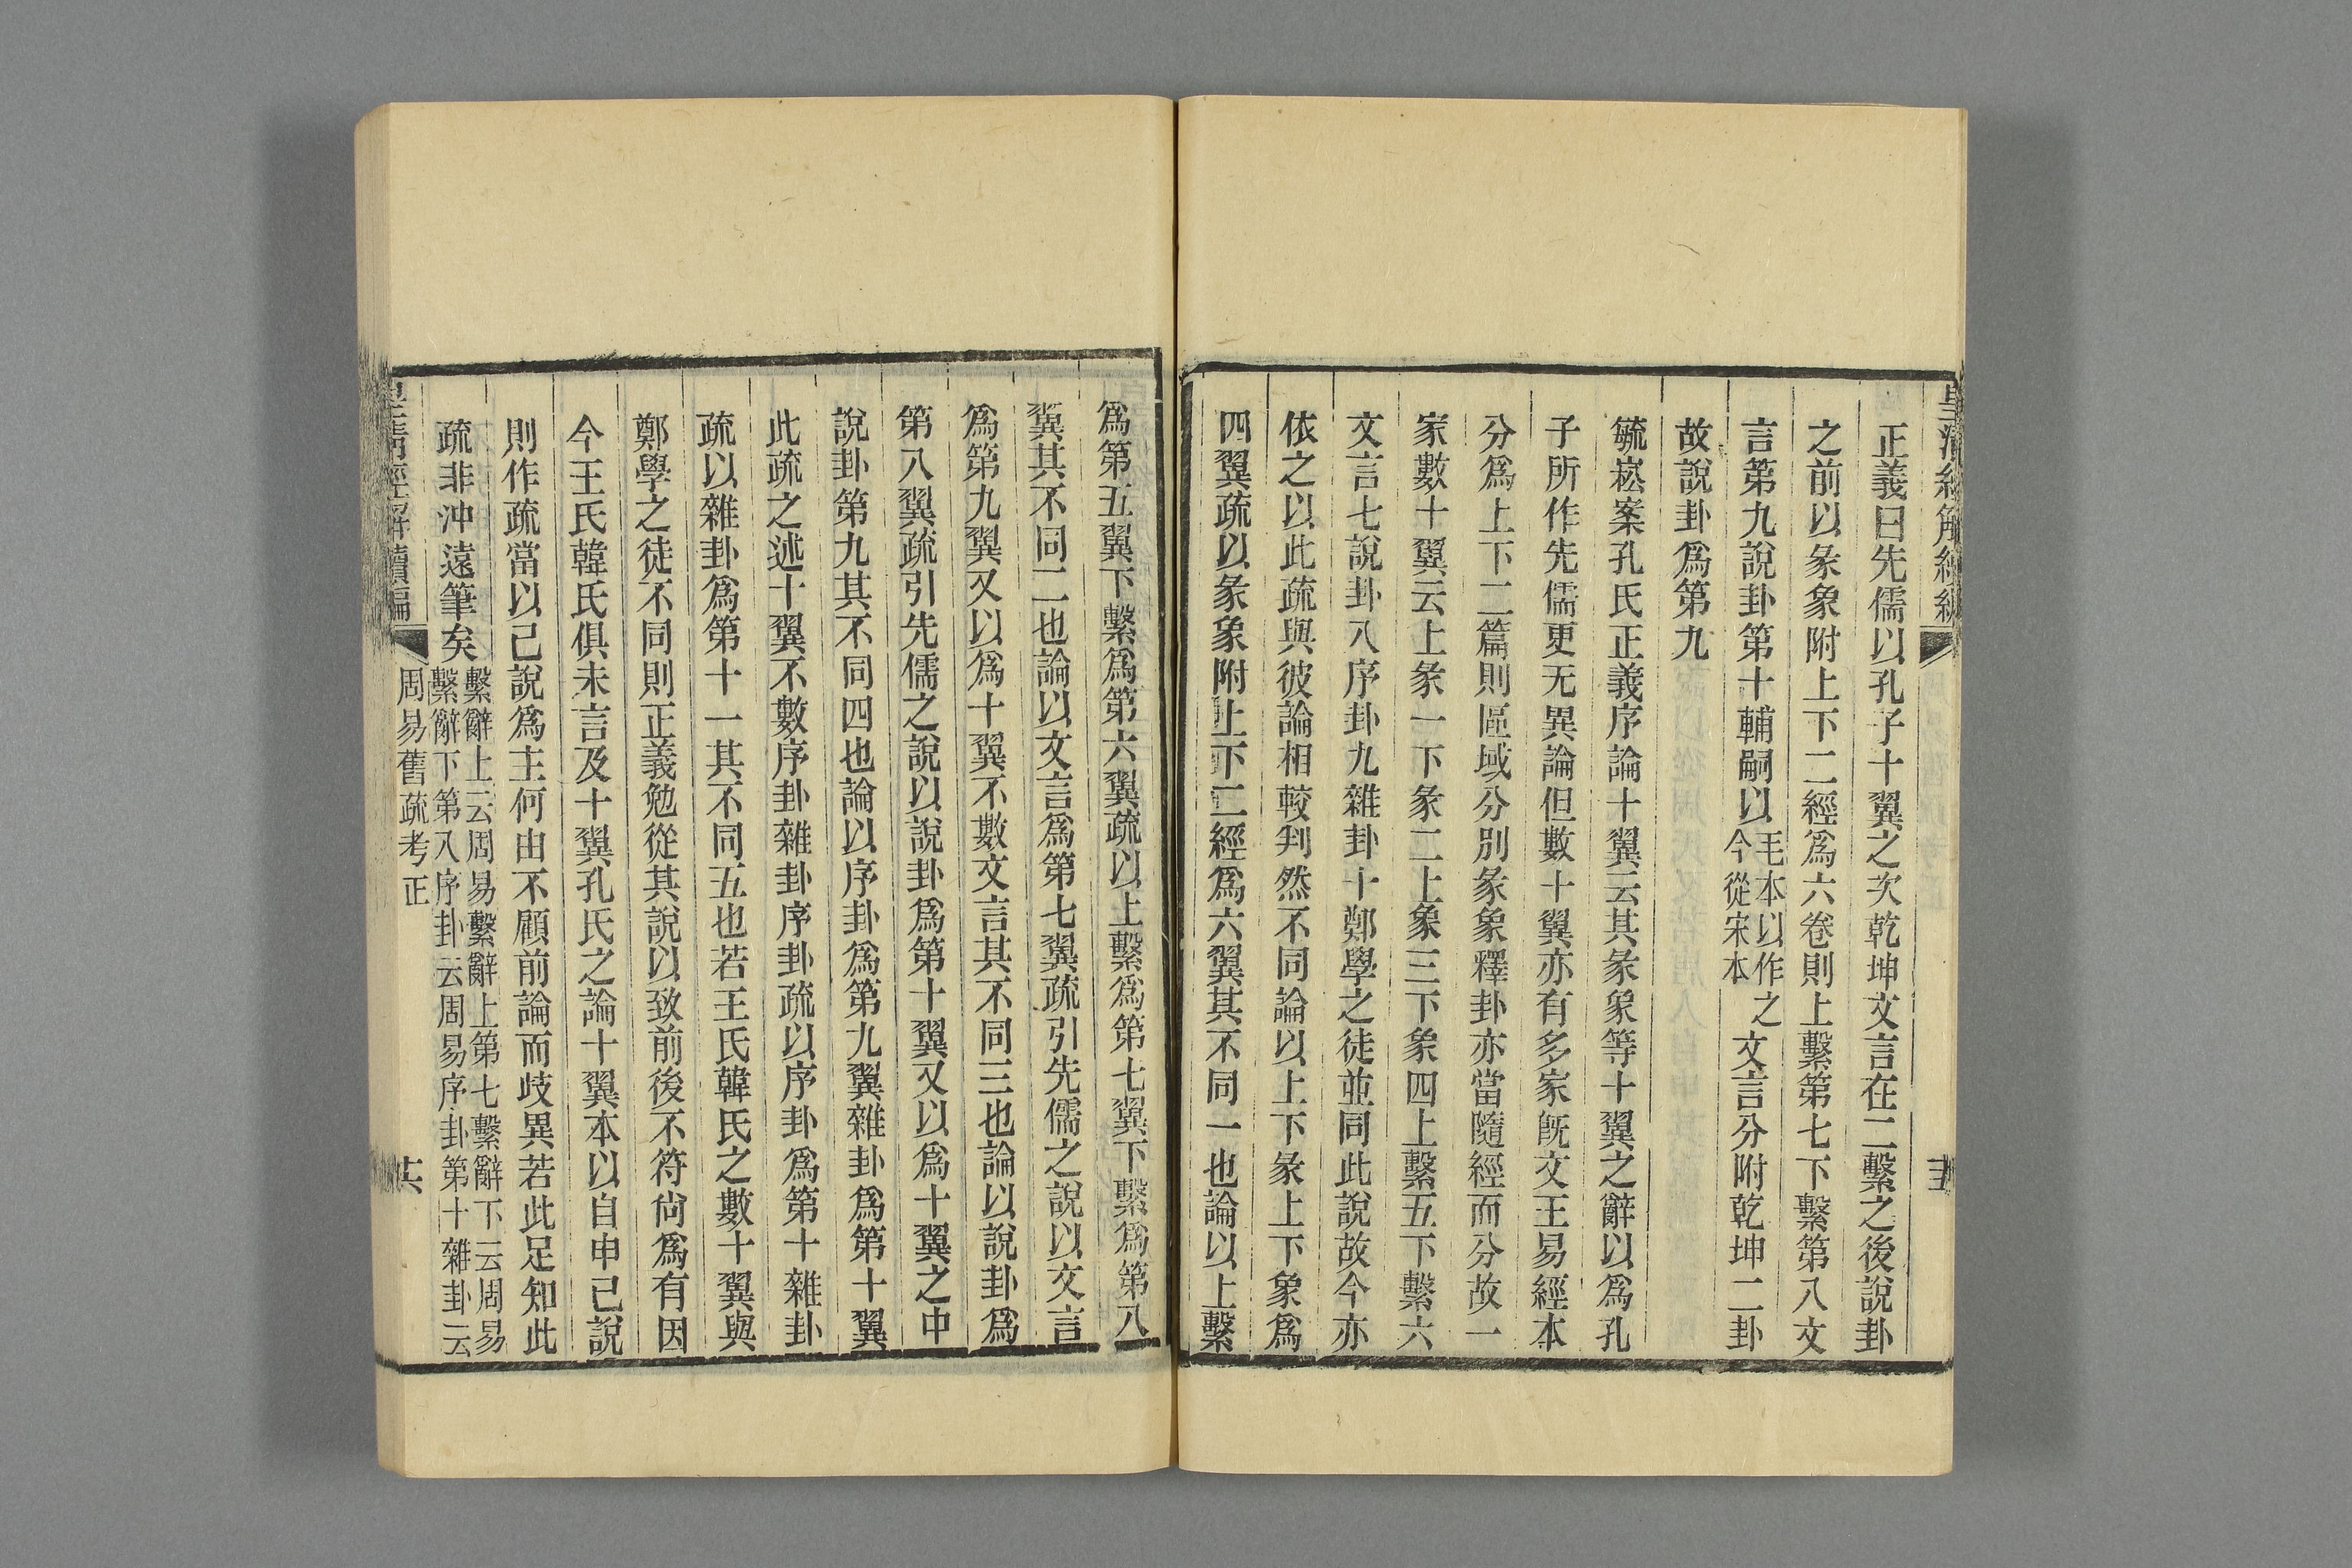 皇清經解續編
正義曰先儒以孔子十翼之次乾坤文言在二繫之後說卦
之前以彖象附上下二經爲六卷則上繫第七下繫第八文
言第九說卦第十輔嗣以
毛本以作
今從宋本
之文言分附乾坤二卦
故說卦爲第九
毓崧案孔氏正義序論十翼云其彖象等十翼之辭以爲孔
子所作先儒更无異論但數十翼亦有多家旣文王易經本
分爲上下二篇則區域分別彖象釋卦亦當隨經而分故一
家數十翼云上彖一下彖二上象三下象四上繫五下繫六
文言七說卦八序卦九雜卦十鄭學之徒並同此說故今亦
依之以此疏與彼論相較判然不同論以上下彖上下象爲
四翼疏以彖象附上下二經爲六翼其不同一也論以上繫
爲第五翼下繫爲第六翼疏以上繫爲第七翼下繫爲第八
翼其不同二也論以文言爲第七翼疏引先儒之說以文言
爲第九翼又以爲十翼不數文言其不同三也論以說卦爲
第八翼疏引先儒之說以說卦爲第十翼又以爲十翼之中
說卦第九其不同四也論以序卦爲第九翼雜卦爲第十翼
此疏之述十翼不數序卦雜卦序卦疏以序卦爲第十雜卦
疏以雜卦爲第十一其不同五也若王氏韓氏之數十翼與
鄭學之徒不同則正義勉從其說以致前後不符尙爲有因
今王氏韓氏俱未言及十翼孔氏之論十翼本以自申已說
則作疏當以己說爲主何由不顧前論而歧異若此足知此
疏非沖遠筆矣
繫辭上云周易繫辭上第七繫辭下云周易
繫辭下第八序卦云周易序卦第十雜卦云
皇清經解續編
周易舊疏考正